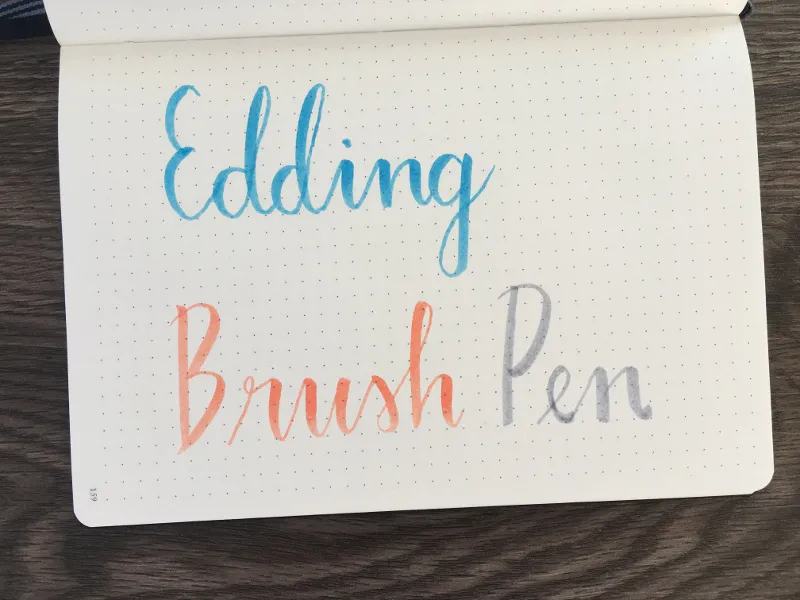 Edding
Brush Pen
159